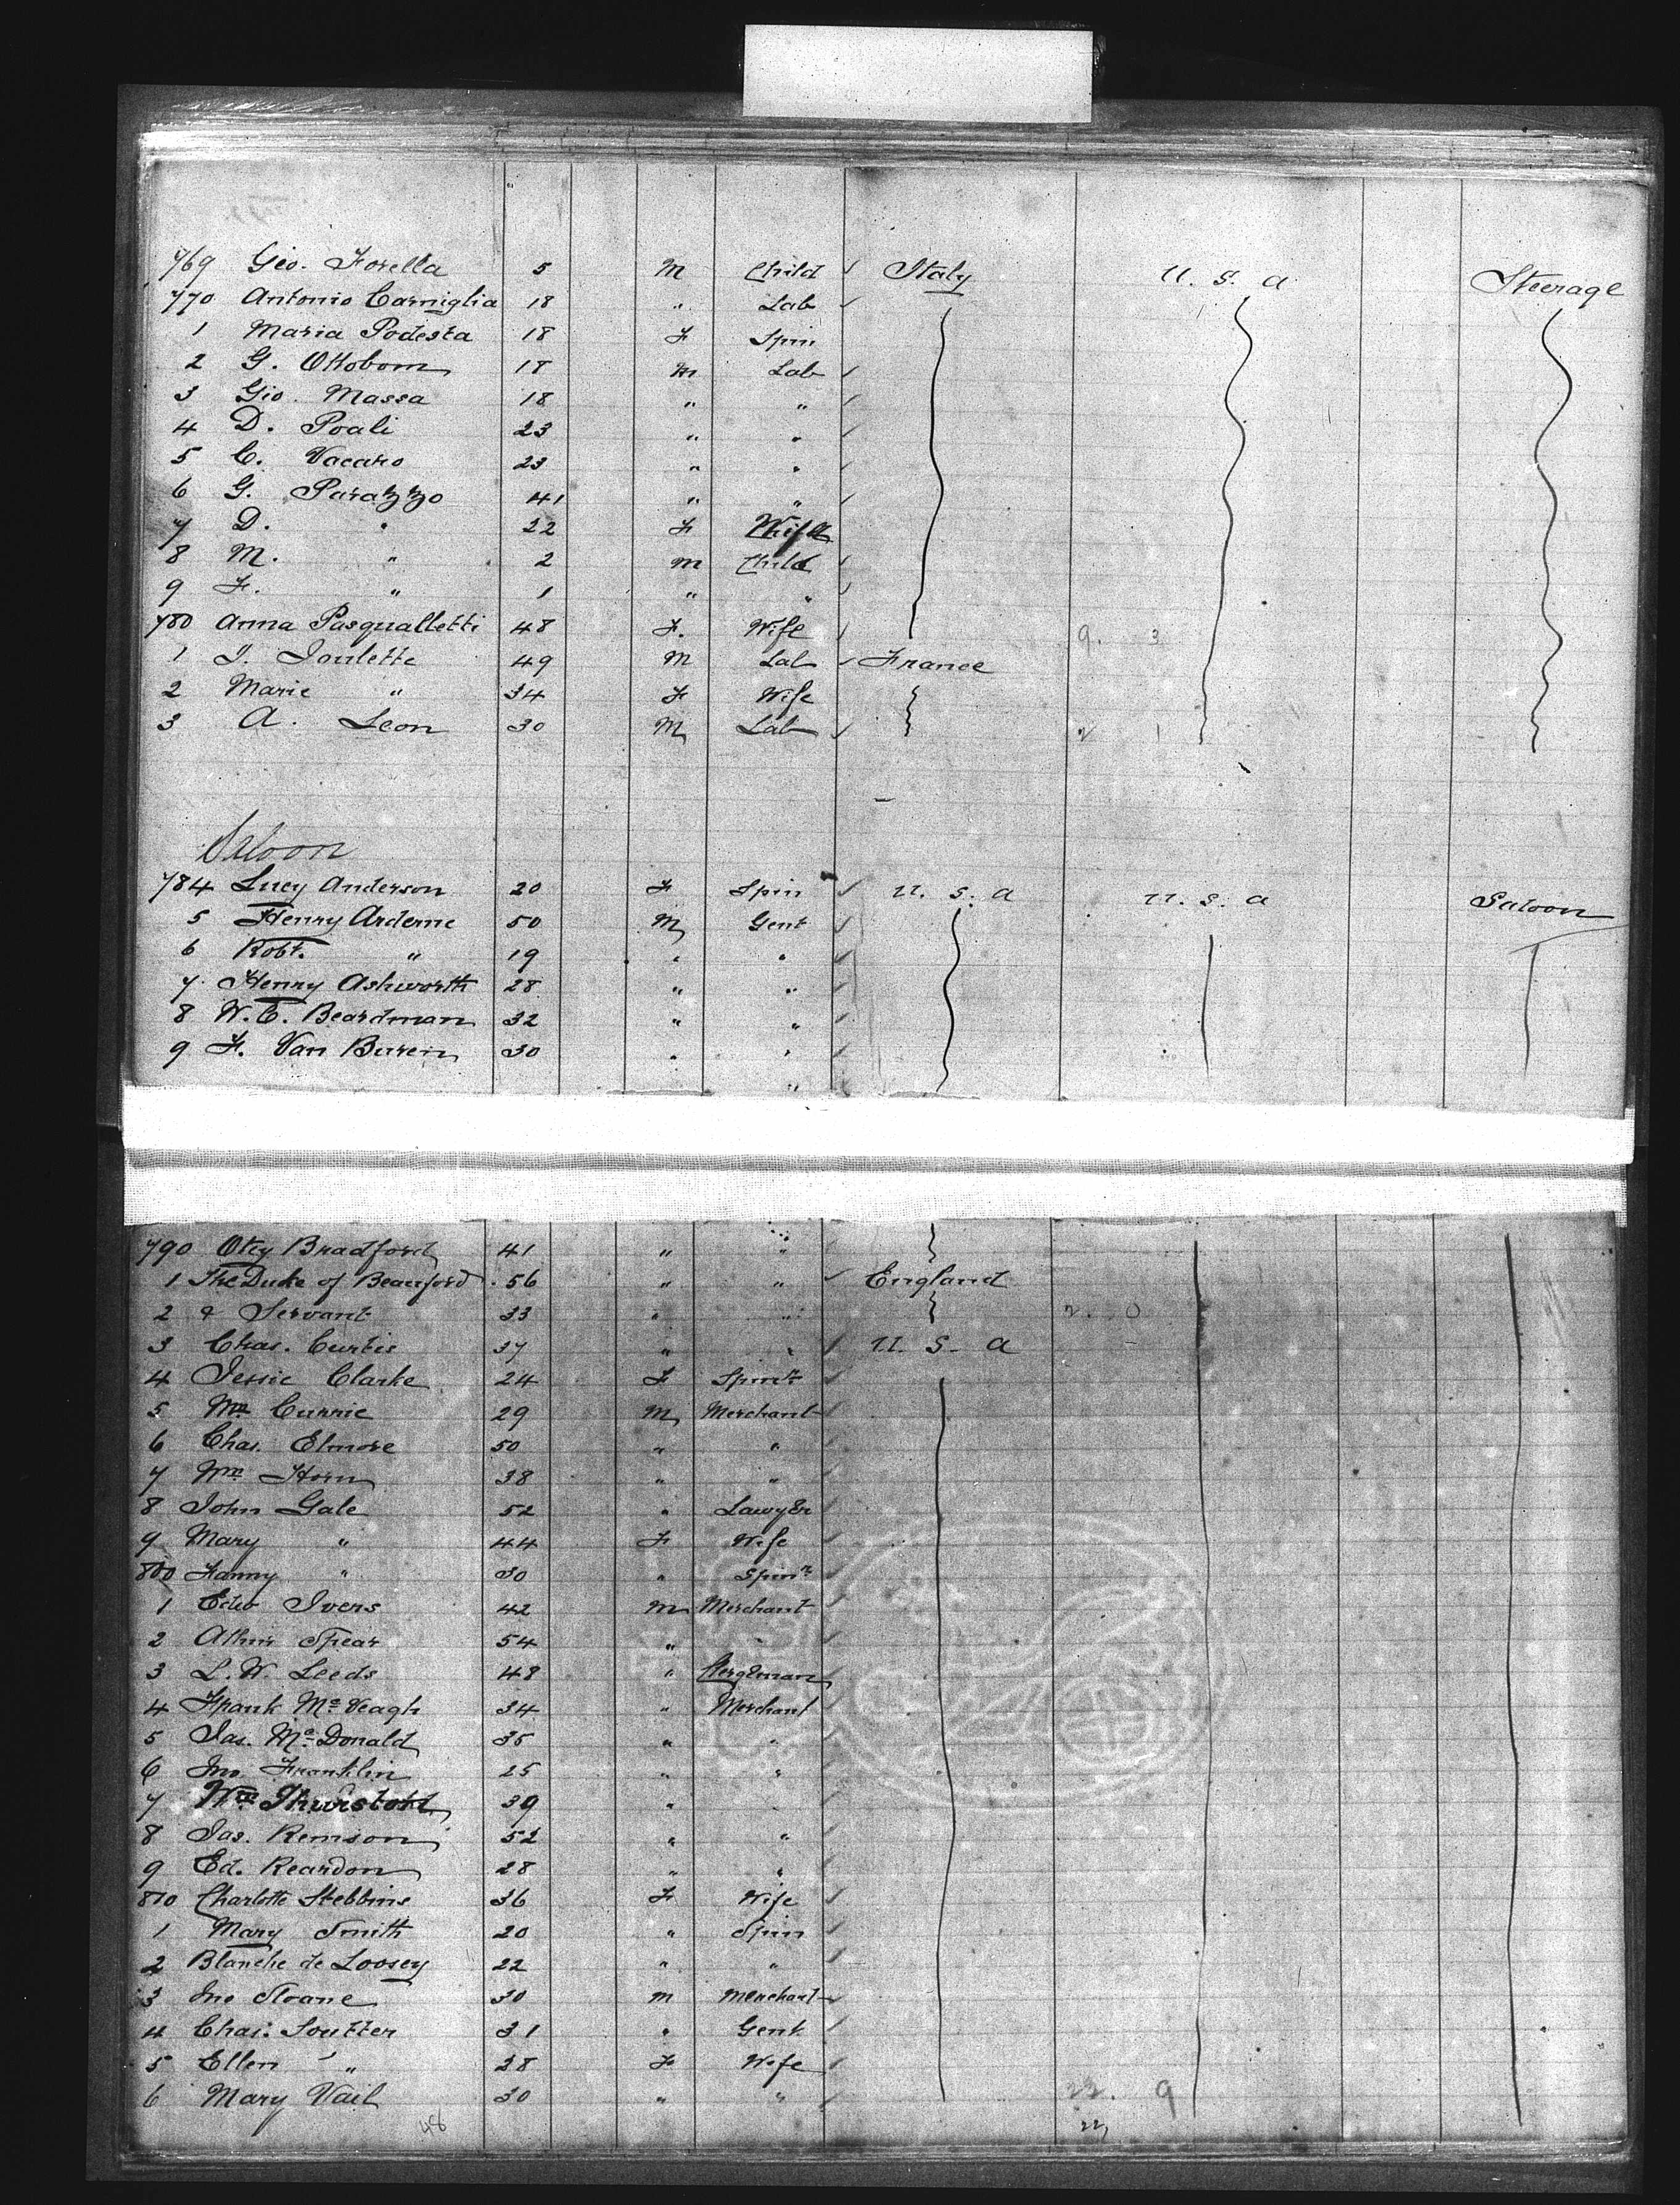 769 Geo. Forella 5 M Child Italy U. S. A Steerage
770 Antonio Carniglia 18 " Lab
1 Maria Podesta 18 F Spin
2 G. Ottobom 18 M Lab
3 Gio. Massa 18 " "
4 D. Poali 23 " "
5 C. Vacaro 23 " "
6 G. Parazzo 41 " "
7 D. " 22 F Wife
8 M. " 2 M Child
9 F. " 1 " "
780 Anna Pasqualletti 48 F. Wife 9. 3
1 J. Joulette 49 M Lab France
2 Marie " 34 F Wife
3 A. Leon 30 M Lab
Saloon
784 Lucy Anderson 20 F Spin U. S. A U. S. A Saloon
5 Henry Arderne 50 M Gent
6 Robt. " 19 " "
7 Henry Ashworth 28 " "
8 W. C. Beardman 32 " "
9 F. Van Buren 30 " "
790 Otey Bradford 41 " "
1 The Duke of Beauford 56 " " England
2 & Servant 33 " "
3 Chas. Curtis 37 " " U. S. A
4 Jessie Clarke 24 F Spinr
5 Mr Currie 29 M Merchant
6 Chas. Elmore 50 " "
7 Wm Horn 38 " "
8 John Gale 52 " Lawyer
9 Mary " 44 F Wife
800 Fanny " 30 " Spinr
1 Edw Ivers 42 M Merchant
2 Spear 54 " "
3 L. W. Leeds 48 " Clergeman
4 Frank McVeagh 34 " Merchant
5 Jas. McDonald 35 " "
6 Jno Franklin 25 " "
7 Wm Thurston 39 "
8 Jas. Remson 52 " "
9 Ed. Reardon 28 " "
810 Charlotte Stebbins 36 F Wife
1 Mary Smith 20 " Spin
2 Blanche de Loosey 22 " "
3 Jno Sloane 30 M Merchant
4 Chas. Soutter 31 " Gent
5 Ellen " 28 F Wife
6 Mary Vail 30 " " 9
48